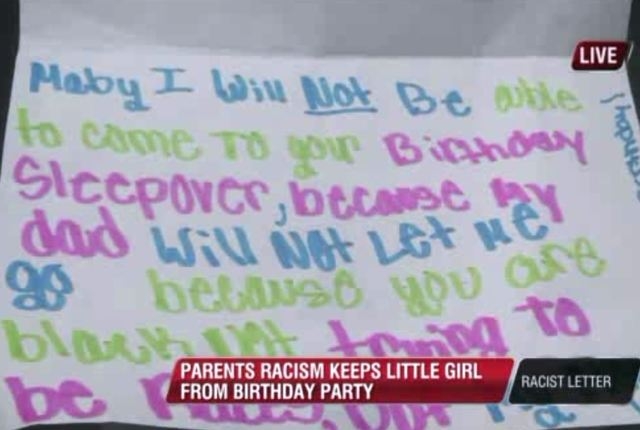 LIVE
Maby I Will Not Be able
to come To your Birthday
Sleepover, because My
dad Will Not Let Me
go because you are
black Not trying to
be
PARENTS RACISM KEEPS LITTLE GIRL
FROM BIRTHDAY PARTY
RACIST LETTER